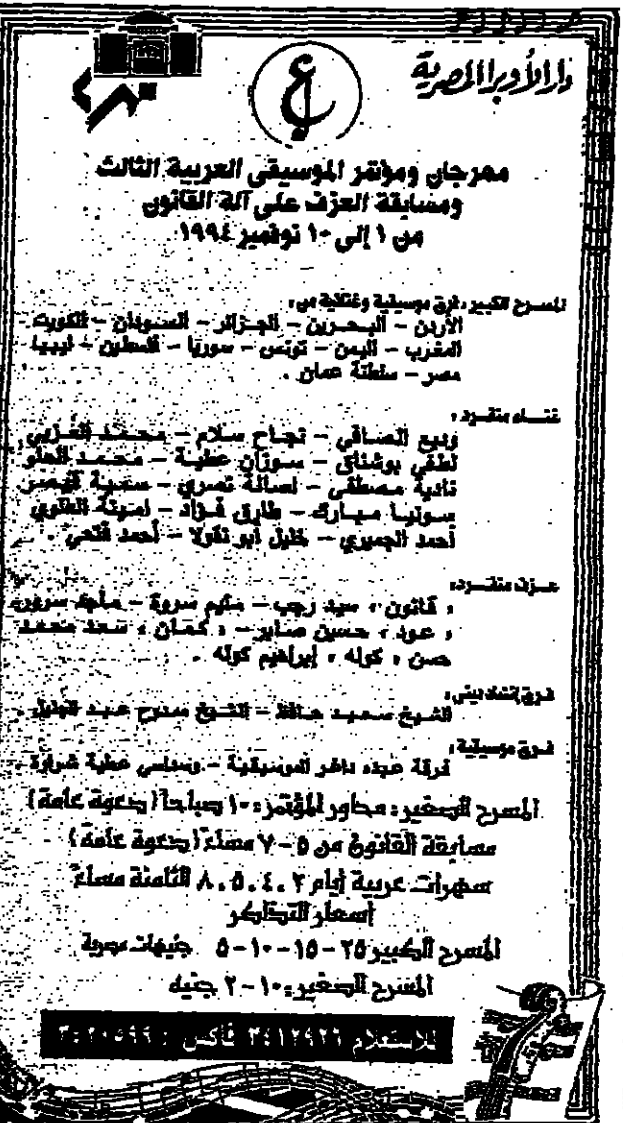 دار الأوبرا المصرية
ع
مهرجان ومؤتمر الموسيقى العربية الثالث
ومسابقة العزف على آلة القانون
من ١ إلى ١٠ نوفمبر ١٩٩٤
المسرح الكبير، فرق موسيقية وغنائية من،
الأردن - البحرين - الجزائر - السودان - الكويت
المغرب - اليمن - تونس - سوريا - فلسطين - ليبيا
مصر - سلطنة عمان .
غناء منفرد،
وديع الصافي - نجاح سلام - محمد العزبي
لطفي بوشناق - سوزان عطية - محمد الحلو
نادية مصطفى - أصالة نصري - سمية قيصر
سونيا مبارك - طارق فؤاد - أمينة
أحمد الجميري - خليل أبو نقولا - أحمد فتحي .
عزف منفرد،
، قانون ، سيد رجب - سليم سروة - ماجد سرور،
، عود ، حسين صابر - ، كمان ، سعد محمد
حسن ، كوله ، إبراهيم كوله .
فرق إنشاد ديني،
الشيخ سعيد حافظ - الشيخ ممدوح عبد الجليل .
فرق موسيقية،
فرقة عبده داغر الموسيقية - وسداسي عطية شرارة .
المسرح الصغير : محاور المؤتمر : ١٠ صباحاً ( دعوة عامة )
مسابقة القانون من ٥ - ٧ مساءً ( دعوة عامة )
سهرات عربية أيام ٢ ، ٤ ، ٥ ، ٨ الثامنة مساءً
أسعار التذاكر
المسرح الكبير ٢٥ - ١٥ - ١٠ - ٥ جنيهات مصرية
المسرح الصغير : ١٠ - ٢ جنيه
للاستعلام ٣٤١٢٩٢٦ فاكس :